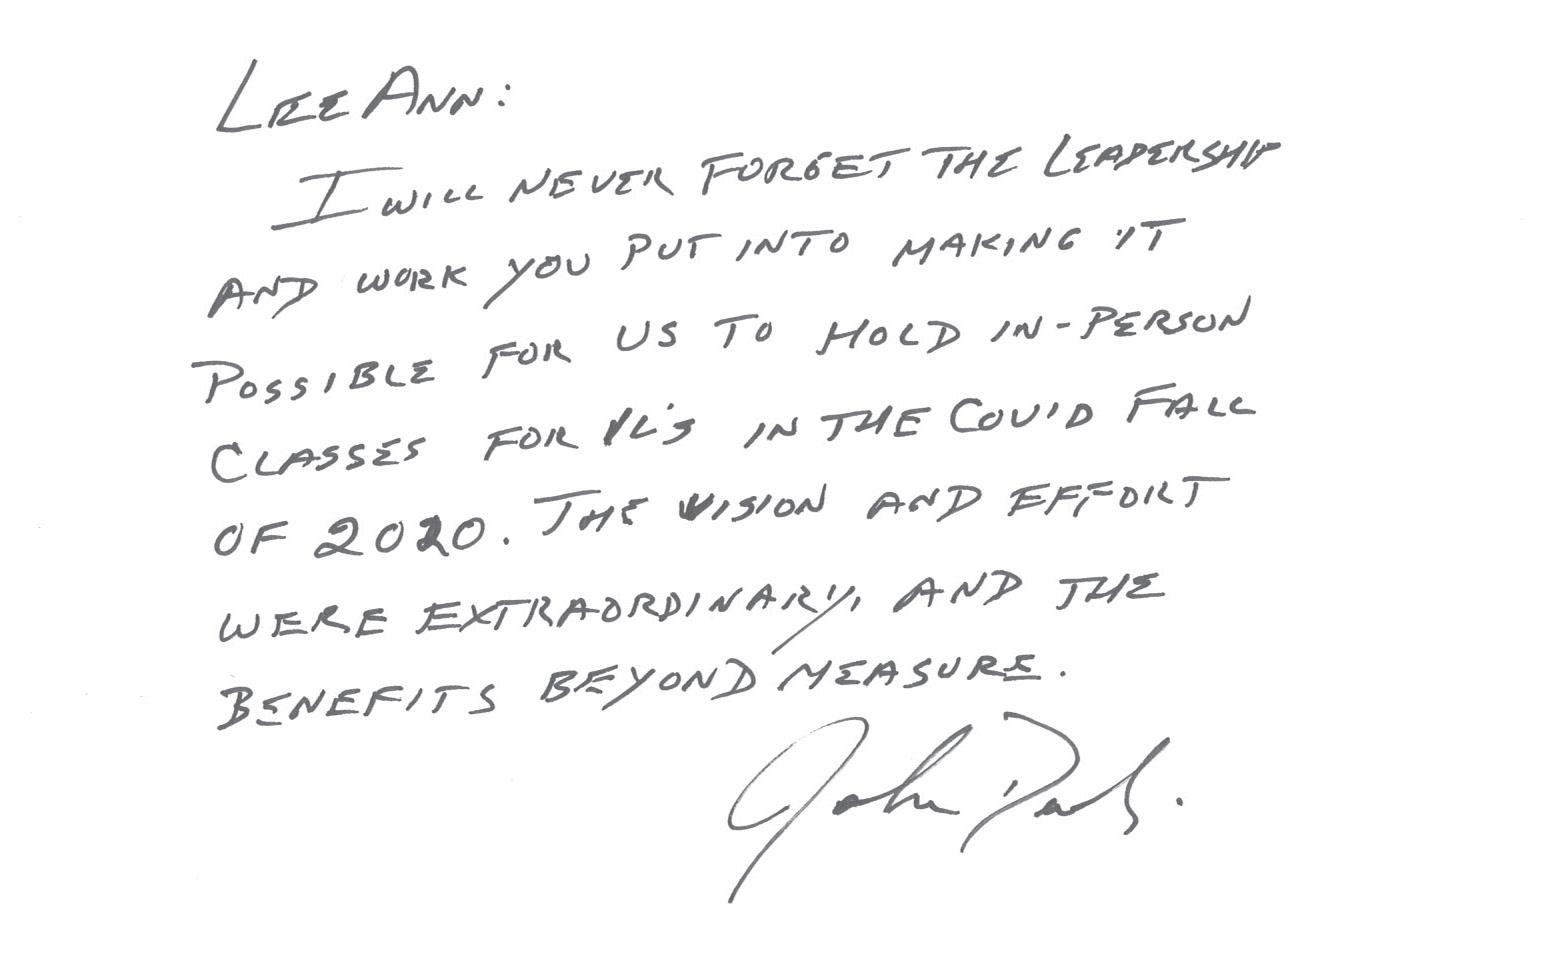 LEE ANN:
I WILL NEVER FORGET THE LEADERSHIP
AND WORK YOU PUT INTO MAKING IT
POSSIBLE FOR US TO HOLD IN-PERSON
CLASSES FOR 1L'S IN THE COVID FALL
OF 2020. THE VISION AND EFFORT
WERE EXTRAORDINARY, AND THE
BENEFITS BEYOND MEASURE.
John